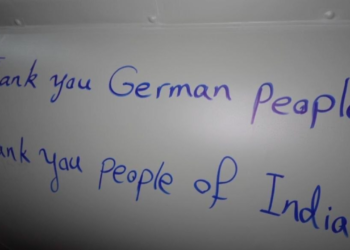 ank you German people
ank you people of India